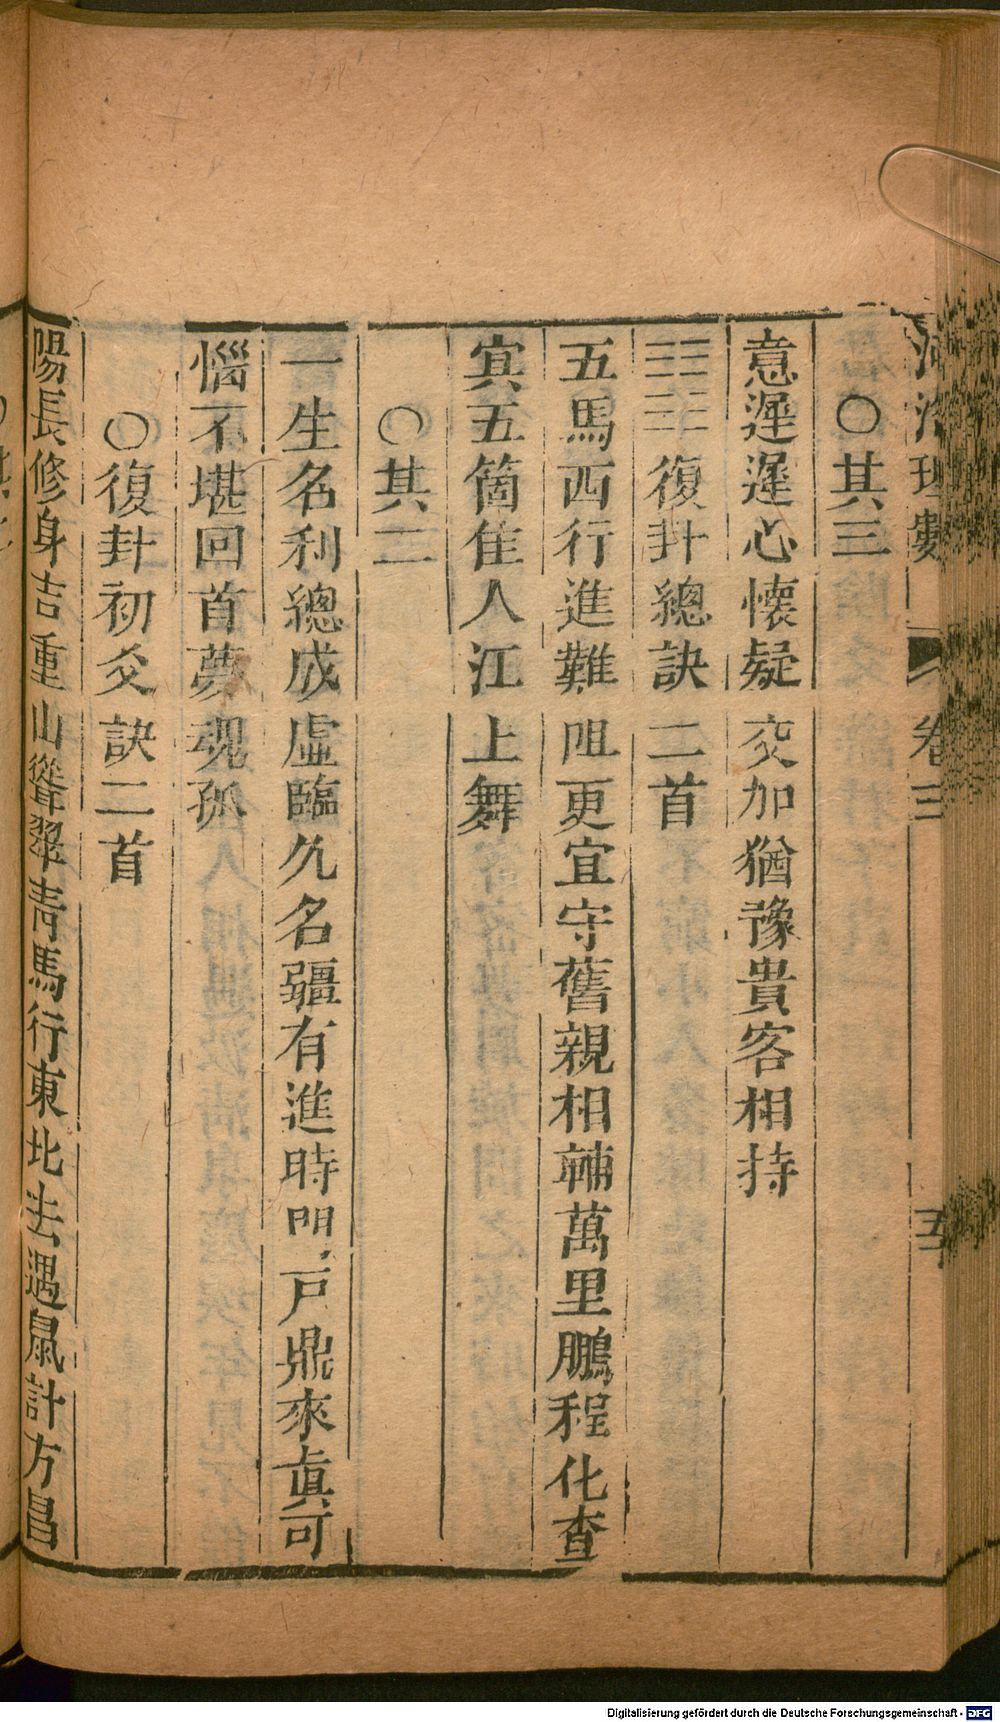 河洛理數 卷三 五
○其三
意遲遲心懷疑 交加猶豫貴客相持
復卦總訣 二首
五馬西行進難 咀更宜守舊親相輔萬里鵬程化查
㝠五箇隹人江 上舞
○其二
一生名利總成虛臨久名疆有進時門戶鼎來眞可
惱不堪回首夢魂孤
○復卦初爻訣二首
陽長修身吉重山聳翠青馬行東北去遇鼠計方昌
Digitalisierung gefördert durch die Deutsche Forschungsgemeinschaft - DFG